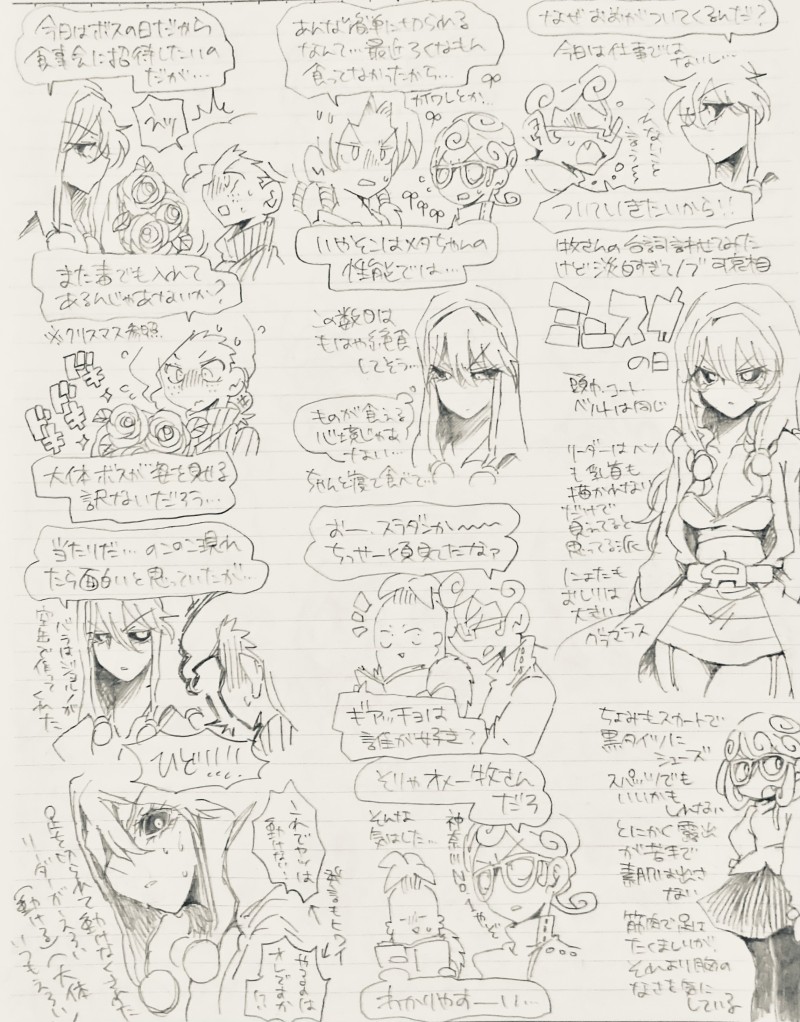 今日はボスの日だから
食事会に招待したいの
だが…
また毒でも入れて
あるんじゃあないか?
※クリスマス参照
ドキ
ドキ
ドキ
大体ボスが姿を見せる
訳ないだろう…
当たりだ…のこのこ現れ
たら面白いと思っていたが…
バラはジョルノが
空缶で作ってくれた
ひど!!!!
これでヤツは
動けない…
やるのは
オレですか
!?
リーダーがえろい
いつもえろい
あんな簡単に切られる
なんて…最近ろくなもん
食ってなかったから…
いやそこはメタちゃんの
性能では…
この数日は
もはや絶食
してそう…
ものが食える
心境じゃあ
ない…
ちゃんと寝て食べて…
おー、スラダンか〜
ちっせー頃見てたなァ
ギアッチョは
誰が好き?
そりゃオメー牧さん
だろ
そんな
気はした…
神奈川No.1やぞ
わかりやすーい…
なぜおめがついてくるんだ?
今日は仕事では
ないし…
そんなこと
言うなよ
ついていきたいから!!
牧さんの台詞言わせてみた
けど淡白すぎてノブ可哀相
ミニスカ
の日
頭巾、コート
ベルトは同じ
リーダーはヘソ
も乳首も
描かれない
だけで
見えてると
思ってる派
にょたも
おしりは
大きい
グラマラス
ちょみもスカートで
黒タイツに
シューズ
スパッツでも
いいかも
しれない
とにかく露出
が苦手で
素肌は出さ
ない
筋肉で足は
たくましいが、
それより胸の
なさを気に
している